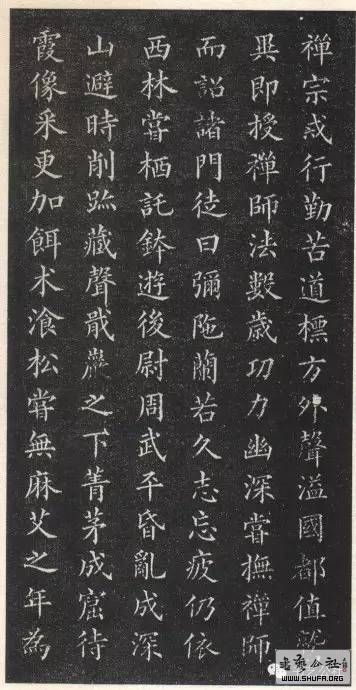 禪宗戒行勤苦道標方外聲溢國都值
異即授禪師法數歲功力幽深嘗撫禪師
而詔諸門徒曰彌陁蘭若久志忘疲仍依
西林嘗栖託鉢遊後尉周武平昏亂成深
山避時削跡藏聲戢巖之下菁茅成窟待
霞像采更加餌术飡松嘗無麻艾之年為
书艺公社
WWW.SHUFA.ORG